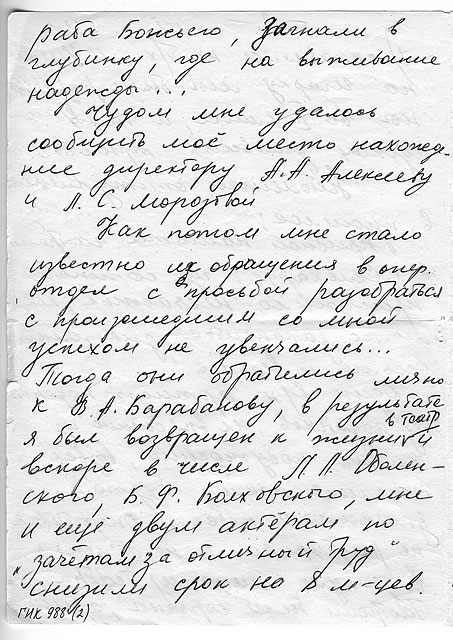 раба Божьего, загнали в
глубинку, где на выживание
надежды...
Чудом мне удалось
сообщить моё место нахожде-
ние директору А.А. Алексееву
и Л. С. Морозовой
Как потом мне стало
известно их обращения в опер.
отдел с просьбой разобраться
с произошедшим со мной
успехом не увенчались...
Тогда они обратились лично
к В.А. Барабанову, в результате
я был возвращен к жизни и в театр
вскоре в числе Л. Л. Оболен-
ского, К. Ф. Болховского, мне
и ещё двум актёрам по
"зачётам за отличный труд"
снизили срок на 8 м-цев.
ГИК 988 (2)